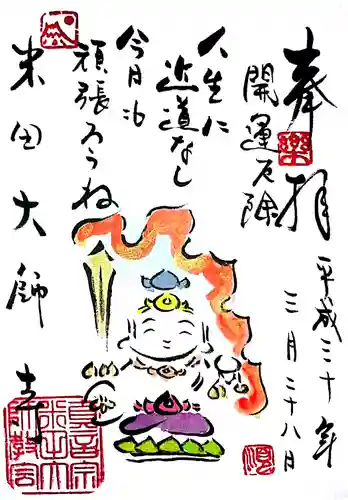 奉拝
開運厄除
平成三十年
三月二十八日
人生に
近道なし
今日も
頑張ろうね
米田大師寺